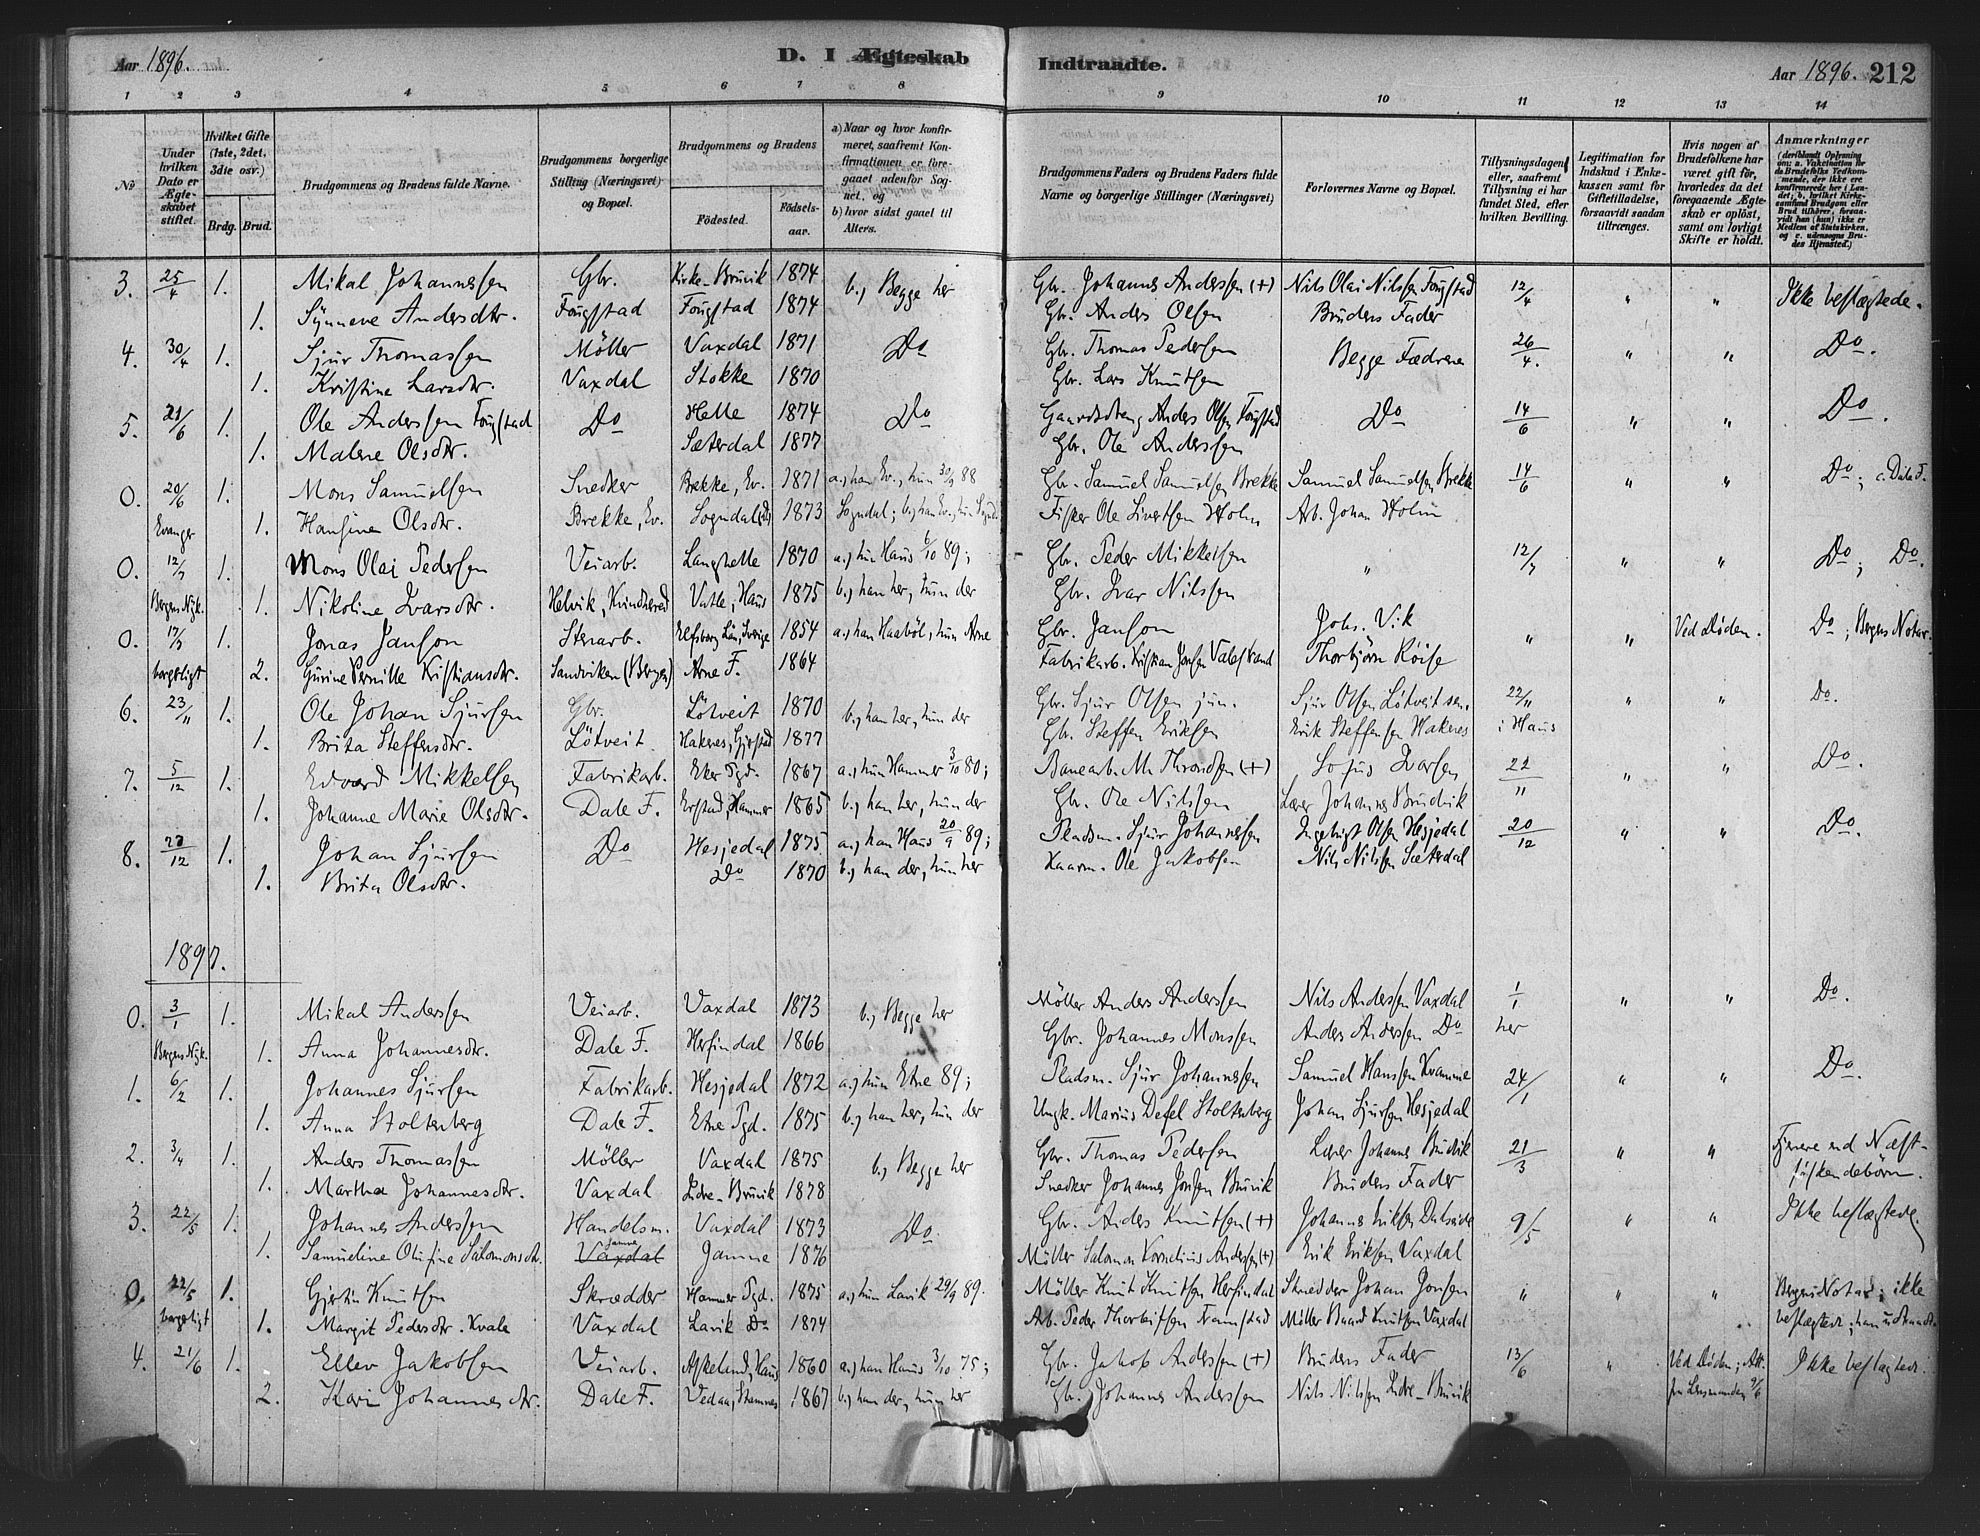 Aar 1896. D. I Ægteskab Indtraadte. Aar 1896. 212
1 2 3 4 5 6 7 8 9 10 11 12 13 14
No
Under hvilken Dato er Ægteskabet stiftet.
Hvilket Gifte (1ste, 2det, 3die osv.)
Brdg. Brud.
Brudgommens og Brudens fulde Navne.
Brudgommens borgerlige Stilling (Næringsvei) og Bopæl.
Brudgommens og Brudens
Fødested. Fødselsaar.
a) Naar og hvor konfirmeret, saafremt Konfirmationen er foregaaet udenfor Sognet, og
b) hvor sidst gaaet til Alters.
Brudgommens Faders og Brudens Faders fulde Navne og borgerlige Stillinger (Næringsvei)
Forlovernes Navne og Bopæl.
Tillysningsdagen eller, saafremt Tillysning ei har fundet Sted, efter hvilken Bevilling.
Legitimation for Indskud i Enkekassen samt for Giftetilladelse, forsaavidt saadan tiltrænges.
Hvis nogen af Brudefolkene har været gift før, hvorledes da det foregaaende Ægteskab er opløst, samt om lovligt Skifte er holdt.
Anmærkninger (deriblandt Oplysning om: a. Vakcination for de Brudefolks Vedkommende, der ikke ere konfirmerede her i Landet; b. hvilket Kirkesamfund Brudgom eller Brud tilhører, forsaavidt han (hun) ikke er Medlem af Statskirken, og c. udensogns Brudes Hjemsted.)
3. 25/4 1. Mikal Johannessen Gbr. Kirke-Bruvik 1874 b.) Begge her Gbr. Johannes Anderssen (+) Nils Olai Nilssen Fougstad 12/4 " " Ikke beslægtede.
1. Synneve Andersdtr. Fougstad Fougstad 1874 Gbr. Anders Olsen Brudens Fader
4. 30/4 1. Sjur Thomassen Möller Vaxdal 1871 Do Gbr. Thomas Pedersen Begge Fædrene 26/4. " " Do.
1. Kristine Larsdtr. Vaxdal Stokke 1870 Gbr. Lars Knutsen
5. 21/6 1. Ole Anderssen Fougstad Do Helle 1874 Do Gaardsdreng Anders Olsen Fougstad Do 14/6 " " Do.
1. Malene Olsdtr. Sæterdal 1877 Gbr. Ole Anderssen
0. 20/6 1. Mons Samuelsen Snedker Brekke, Ev. 1871 a.) han Ev., hun 30/9 88 Gbr. Samuel Samuelsen Brekke Samuel Samuelsen Brekke 14/6 " " Do; c. Dale F.
Evanger 1. Hansine Olsdtr. Brekke, Ev. Sogndal 1873 Sogndal; b.) han Ev., hun Sogndal Fisker Ole Sivertsen Holm Arb. Johan Holm
0. 12/7 1. Mons Olai Pedersen Veiarb. Langhelle 1870 a.) hun Haus 6/10 89; Gbr. Peder Mikkelsen " 12/7 " " Do; Do.
Bergens Nyk. 1. Nikoline Ivarsdtr. Helvik, Kvindherred Vatle, Haus 1875 b.) han her, hun der Gbr. Ivar Nilssen
0. 17/7 1. Jonas Janson Stenarb. Elfsborg Län, Sverige 1854 a.) han Haaböl, hun Arne Gbr. Janson Johs. Vik " " Ved Døden. Do; Bergens Notar.
borgerligt 2. Gurine Pernille Kristiansdtr. Sandviken (Bergen) Arne F. 1864 Fabrikarb. Kristian Jonsen Valestrand Thorbjørn Röise
6. 23/11 1. Ole Johan Sjursen Gbr. Lötveit 1870 b.) han her, hun der Gbr. Sjur Olsen jun. Sjur Olsen Løtveit sen. 22/11 " " Do.
1. Brita Steffensdtr. Lötveit Hakenes, Gjerstad 1877 Gbr. Steffen Eriksen Erik Steffensen Hakenes i Haus
7. 5/12 1. Edvard Mikkelsen Fabrikarb. Eker Pgd. 1867 a.) hun Hammer 3/10 80; Banearb. M. Throndsen (+) Sofus Ivarsen 22/11 " " Do.
1. Johanne Marie Olsdtr. Dale F. Erstad, Hammer 1865 b.) han her, hun der Gbr. Ole Nilssen Lærer Johannes Brudvik
8. 27/12 1. Johan Sjursen Do Hesjedal 1875 a.) han Haus 20/9 89; Pladsm. Sjur Johannessen Ingebrigt Olsen Hesjedal 20/12 " " Do.
1. Brita Olsdtr. Do 1870 b.) han der, hun her Kaarm. Ole Jakobsen Nils Nilssen Sæterdal
1897.
0. 3/1 1. Mikal Anderssen Veiarb. Vaxdal 1873 b.) Begge her Möller Anders Anderssen Nils Anderssen Vaxdal 1/1 " " Do.
Bergens Nyk. 1. Anna Johannesdtr. Dale F. Herfindal 1866 Gbr. Johannes Monssen Anders Anderssen Do her
1. 6/2 1. Johannes Sjursen Fabrikarb. Hesjedal 1872 a.) hun Etne 89; Pladsm. Sjur Johannessen Samuel Hanssen Kvamme 24/1 " " Do.
1. Anna Stoltenberg Dale F. Etne Pgd. 1875 b.) han her, hun der Ungk. Marius Defel Stoltenberg Johan Sjursen Hesjedal
2. 3/4 1. Anders Thomassen Möller Vaxdal 1875 b.) Begge her Gbr. Thomas Pedersen Lærer Johannes Brudvik 21/3 " " Fjernere end Næst-
1. Martha Johannesdtr. Vaxdal Indre-Bruvik 1878 Snedker Johannes Jonsen Bruvik Brudens Fader søskendebörn.
3. 22/5 1. Johannes Anderssen Handelsm. Vaxdal 1873 Do. Gbr. Anders Knutsen (+) Johannes Eriksen Dalseide 9/5 " " Ikke beslægtede.
1. Samueline Olufine Salomonsdtr. Vaxdal Jamne Jamne 1876 Möller Salomon Kornelius Andersen (+) Erik Eriksen Vaxdal
0. 22/5 1. Gjertin Knutsen Skrædder Hammer Pgd. 1875 a.) hun Lavik 29/9 89. Möller Knut Knutsen Herfindal Skrædder Johan Jonsen " " " Bergens Notar; ikke
borgerligt 1. Margit Pedersdtr. Kvale Vaxdal Lavik Do 1874 Arb. Peder Thorbitsen Namstad Möller Baard Knutsen Vaxdal beslægtede; han udtraadt.
4. 21/6 1. Ellev Jakobsen Veiarb. Askeland, Haus 1860 a.) han Haus 3/10 75; Gbr. Jakob Anderssen (+) Brudens Fader 13/6 " Ved Døden; Att. Ikke beslægtede.
2. Kari Johannesdtr. Dale F. Vedaa, Stamnes 1867 b.) han der, hun her Gbr. Johannes Anderssen Nils Nilssen Indre-Bruvik fra Lensmanden 9/6